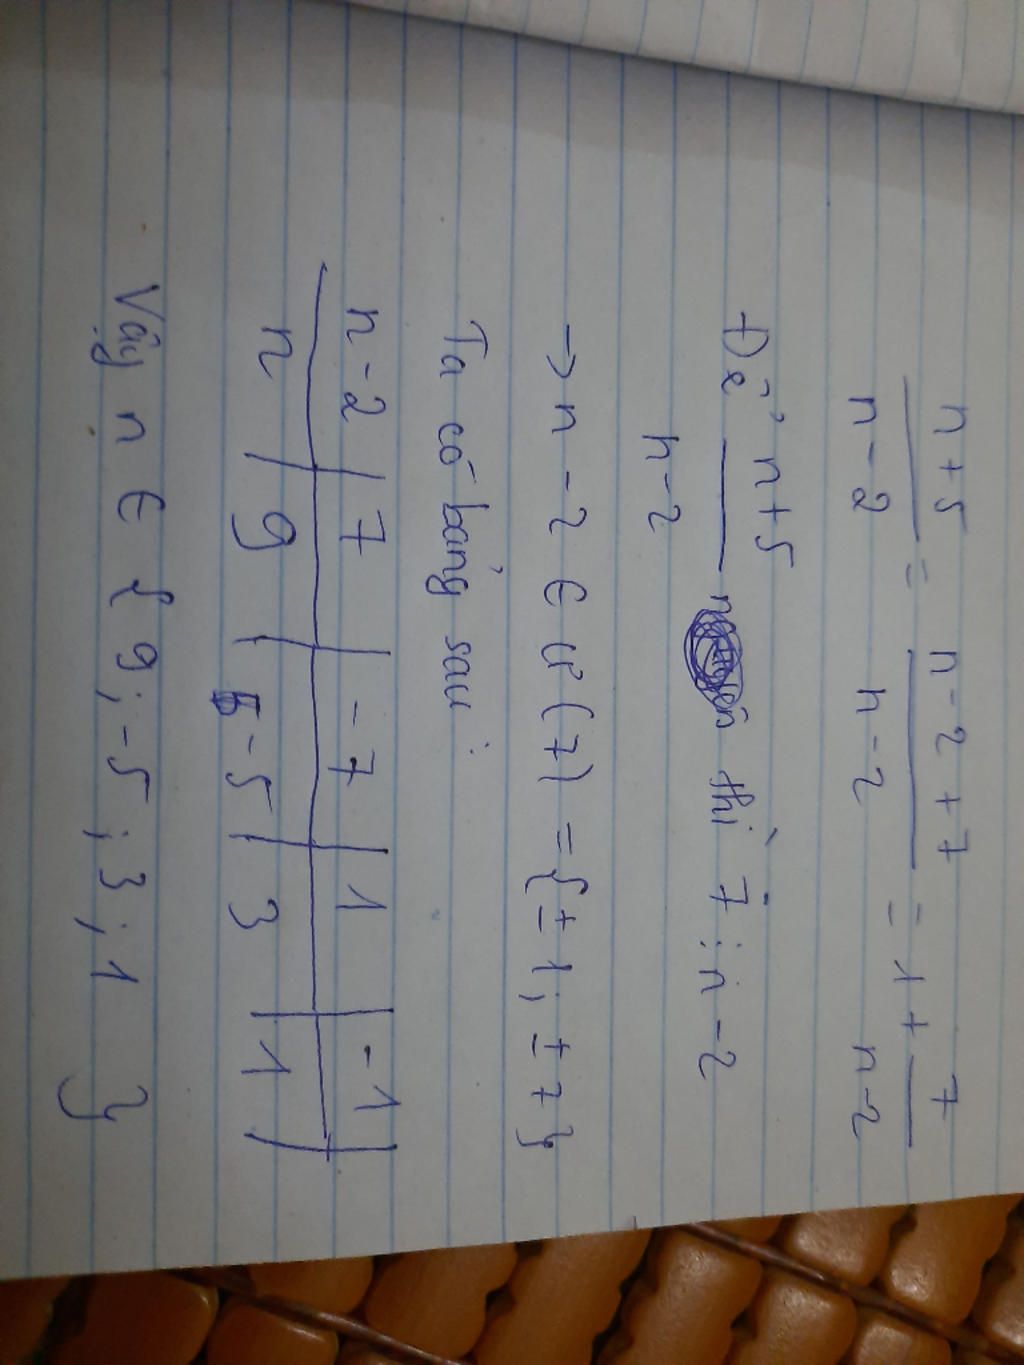 n+5 / n-2 = n-2+7 / n-2 = 1 + 7 / n-2
Để n+5 / n-2 thì 7 ⋮ n-2
→ n-2 ∈ Ư(7) = {±1; ±7}
Ta có bảng sau:
n-2 | 7 | -7 | 1 | -1 |
n | 9 | -5 | 3 | 1 |
Vậy n ∈ {9; -5; 3; 1 }